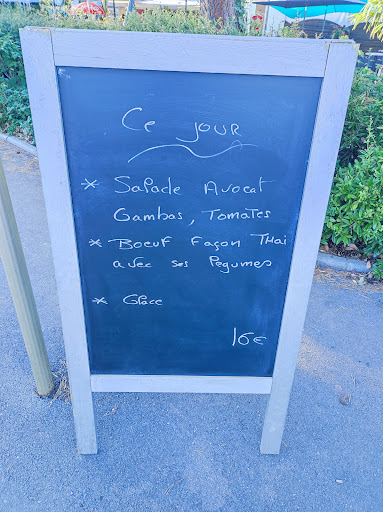 Ce JOUR
* Salade Avocat
Gambas, Tomates
* Boeuf Façon Thai
avec ses légumes
* Glace
16€